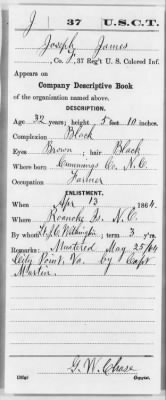 J 37 U.S.C.T.
Joseph James
, Co. J, 37 Reg't U. S. Colored Inf.
Appears on
Company Descriptive Book
of the organization named above.
DESCRIPTION.
Age 32 years; height 5 feet 10 inches.
Complexion Black
Eyes Brown; hair Black
Where born Cummings Co. N.C.
Occupation Farmer
ENLISTMENT.
When Apr 13, 1864.
Where Roanoke Is. N.C.
By whom ; term 3 y'rs.
Remarks: Mustered May 25/64
City Point, Va. by Capt
Martin.
G. W. Chase
Copyist.